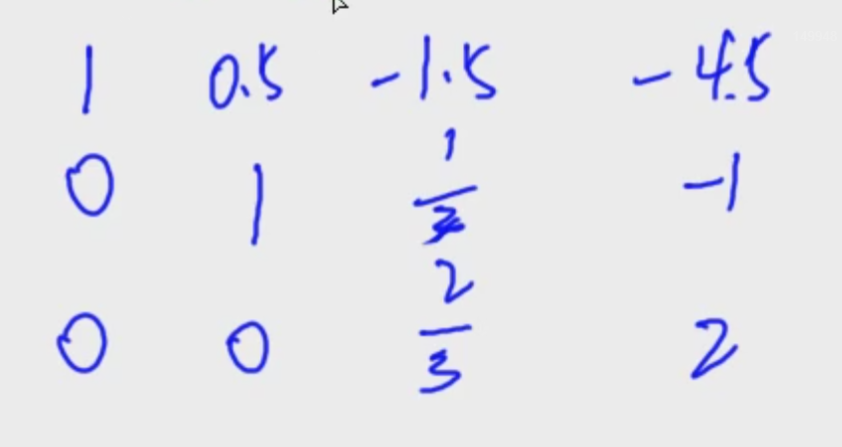 1 0.5 -1.5 -4.5
0 1 1/3 -1
0 0 2/3 2